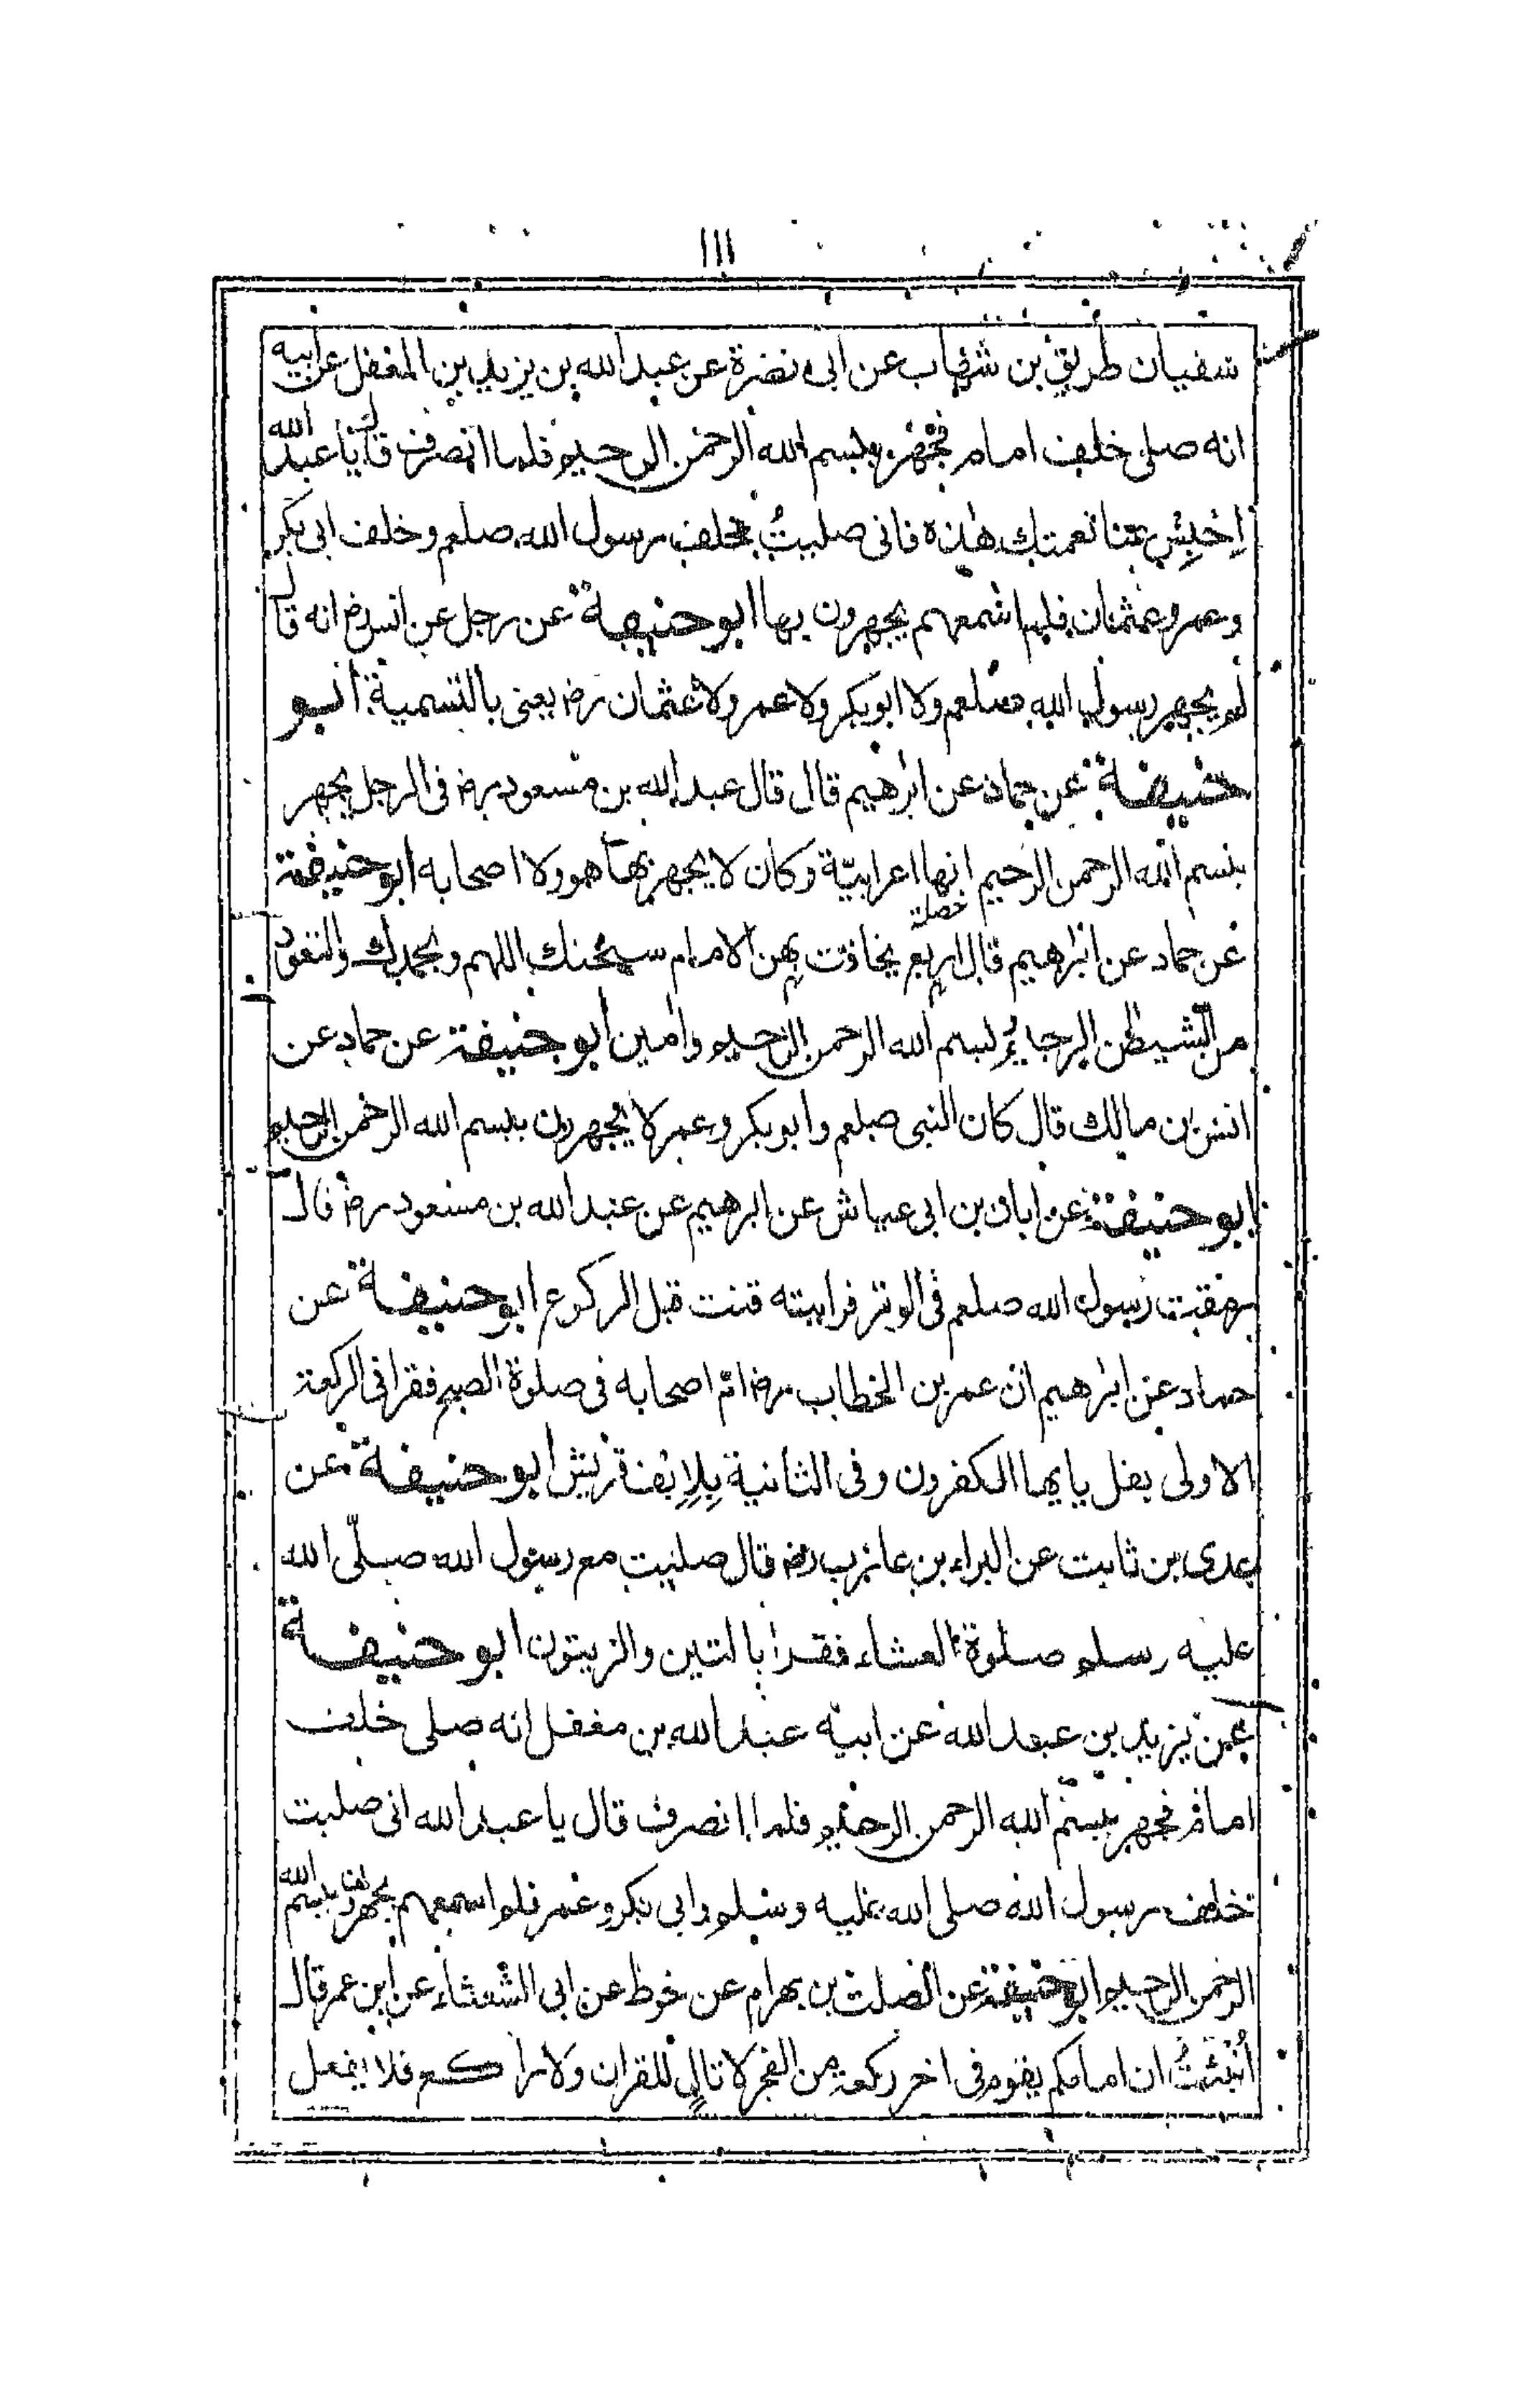 ١١١
سفيان طريف بن شهاب عن ابى نضرة عن عبد الله بن يزيد بن المغفل عن ابيه
انه صلى خلف امام فجهر ببسم الله الرحمن الرحيم فلما انصرف قال يا عبد الله
احبس عنا نغمتك هذه فانى صليتُ خلف رسول الله صلعم وخلف ابى بكر
وعمر وعثمان فلم اسمعهم يجهرون بها ابو حنيفة عن رجل عن انس رض انه قال
لم يجهر رسول الله صلعم ولا ابو بكر ولا عمر ولا عثمان رض يعنى بالتسمية ابو
حنيفة عن حماد عن ابرهيم قال قال عبد الله بن مسعود رض فى الرجل يجهر
ببسم الله الرحمن الرحيم انها اعرابيّة وكان لا يجهر بها هو ولا اصحابه ابو حنيفة
عن حماد عن ابرهيم قال اربع خصلة يخافت بهن الامام سبحنك اللهم وبحمدك والتعوذ
من الشيطن الرجيم وبسم الله الرحمن الرحيم وامين ابو حنيفة عن حماد عن
انس بن مالك قال كان النبى صلعم وابو بكر وعمر لا يجهرون ببسم الله الرحمن الرحيم
ابو حنيفة عن ابان بن ابى عياش عن ابرهيم عن عبد الله بن مسعود رض قال
رمقت رسول الله صلعم فى الوتر فرايته قنت قبل الركوع ابو حنيفة عن
حماد عن ابرهيم ان عمر بن الخطاب رض ام اصحابه فى صلوة الصبح فقرا فى الركعة
الاولى بقل يايها الكفرون وفى الثانية بِلِاِيْلف قريش ابو حنيفة عن
عدى بن ثابت عن البراء بن عازب رض قال صليت مع رسول الله صلّى الله
عليه وسلم صلوة العشاء فقرا بالتين والزيتون ابو حنيفة
عن يزيد بن عبد الله عن ابيه عبد الله بن مغفل انه صلى خلف
امام فجهر ببسم الله الرحمن الرحيم فلما انصرف قال يا عبد الله انى صليت
خلف رسول الله صلى الله عليه وسلم وابى بكر وعمر فلم اسمعهم يجهرون ببسم الله
الرحمن الرحيم ابو حنيفة عن الصلت بن بهرام عن حوط عن ابى الشعثاء عن ابن عمر قال
اُنْبِئتُ ان امامكم يقوم فى اخر ركعة من الفجر لا تالٍ للقران ولا راكع فلا يفعل